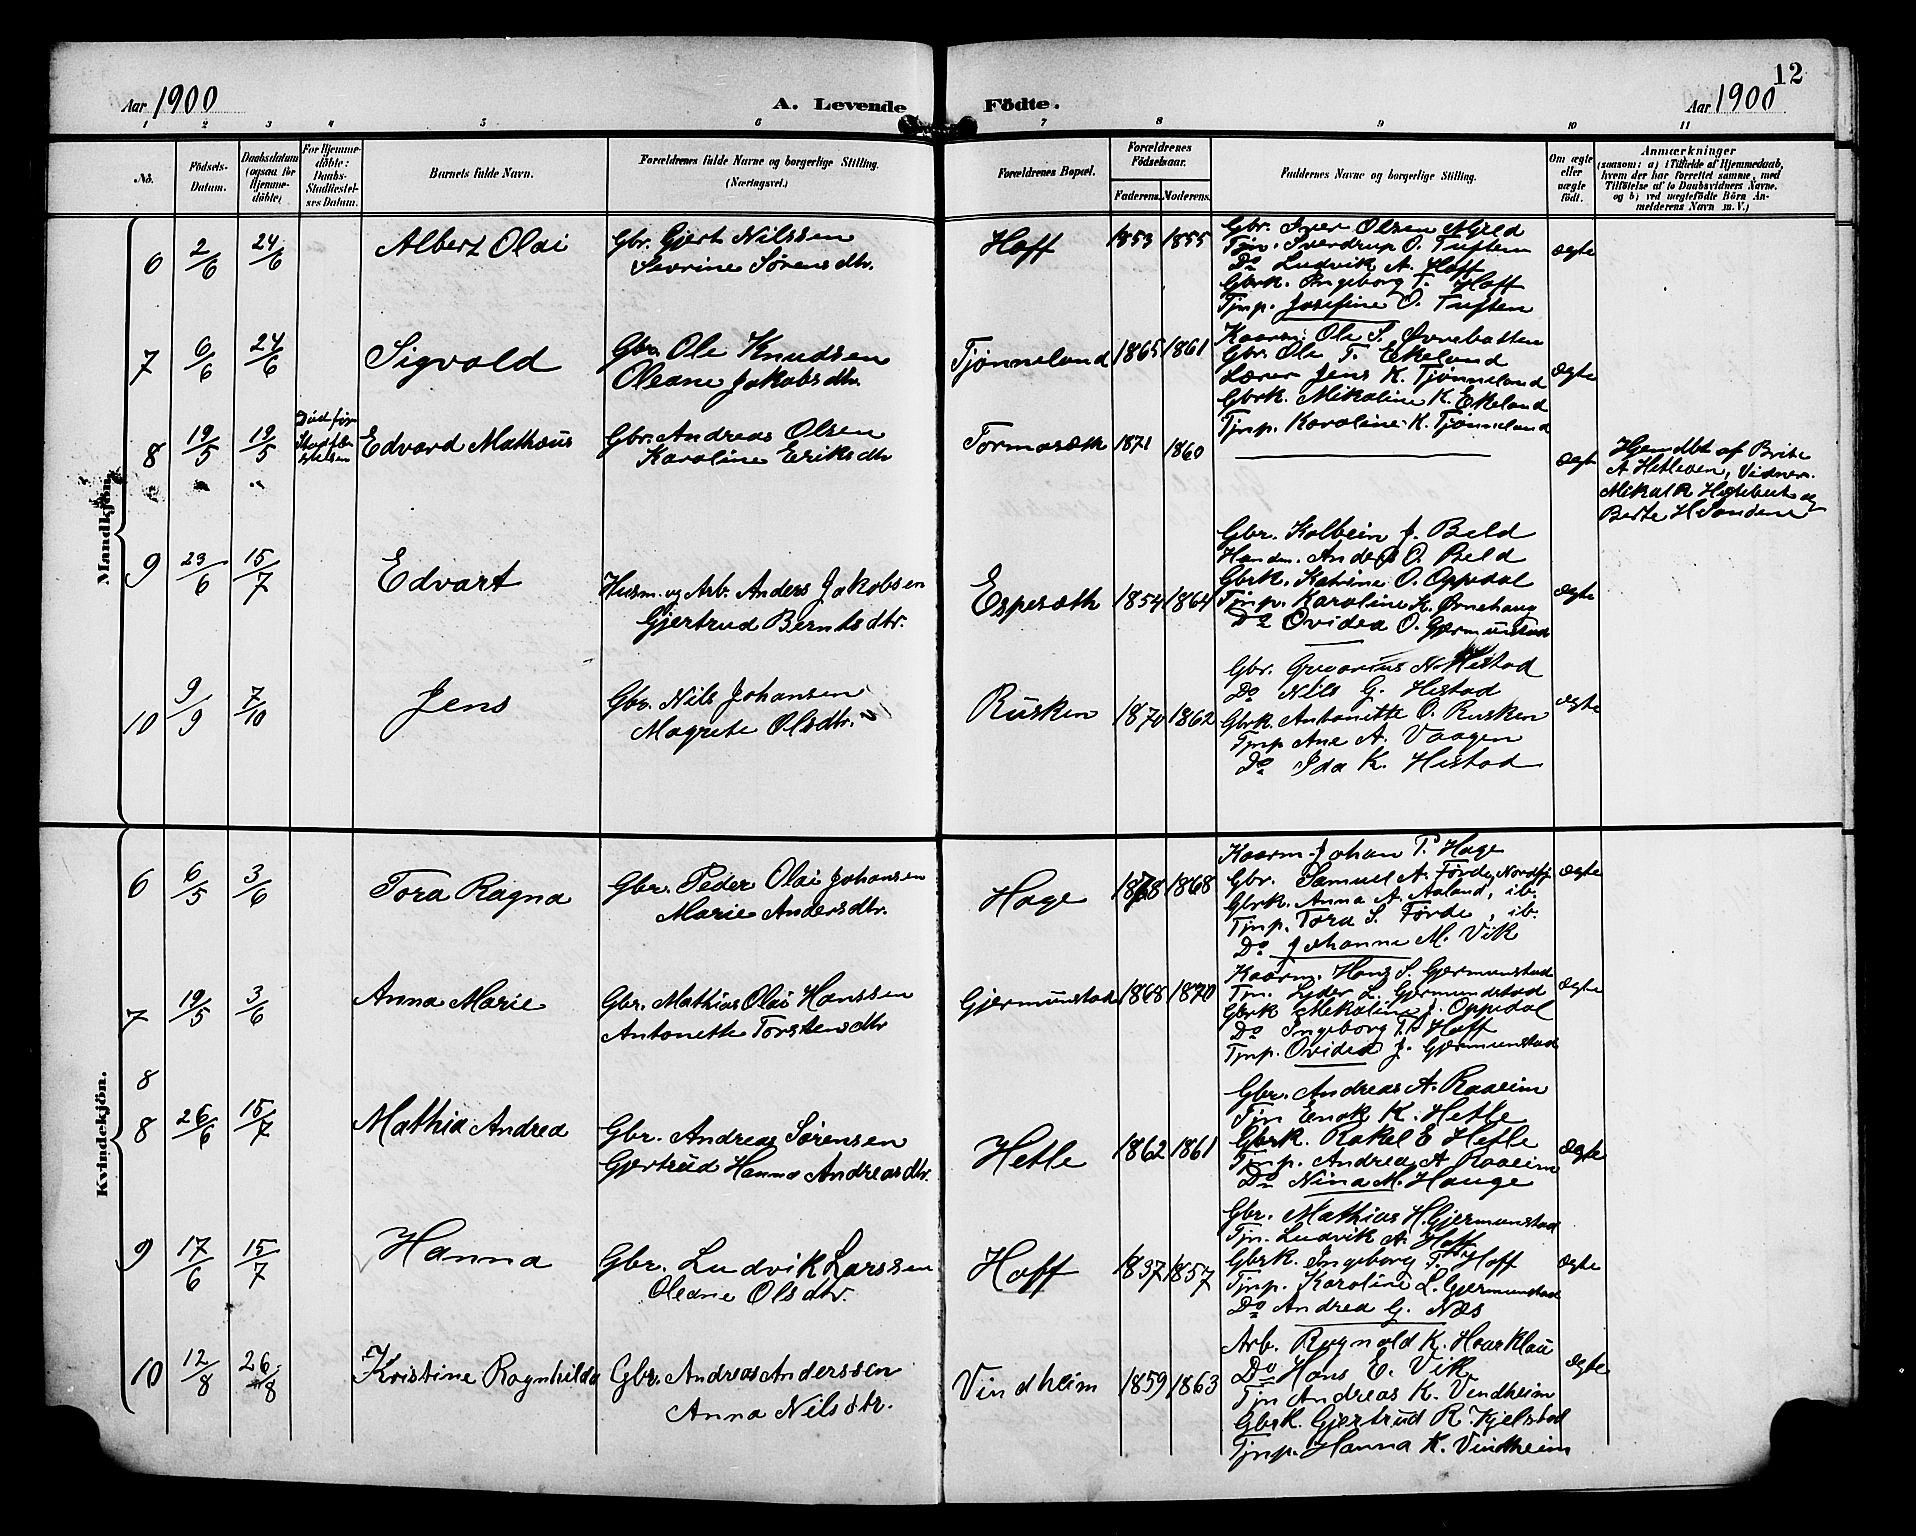 12
Aar 1900
A. Levende Födte.
Aar 1900
1 2 3 4 5 6 7 8 9 10 11
No.
Födsels-Datum.
Daabsdatum (ogsaa for Hjemme-döbte)
For Hjemme-döbte: Daabs-Stadfæstel-ses Datum.
Barnets fulde Navn.
Forældrenes fulde Navne og borgerlige Stilling. (Næringsvei.)
Forældrenes Bopæl.
Forældrenes Födselsaar.
Faderens. Moderens.
Faddernes Navne og borgerlige Stilling.
Om ægte eller uægte födt.
Anmærkninger
(saasom: a) i Tilfælde af Hjemmedaab, hvem der har forrettet samme, med Tilföielse af to Daabsvidners Navne. og b) ved uægtefödte Börn Anmelderens Navn m. V.)
Mandkjön.
6 2/6 24/6 Albert Olai
Gbr. Gjert Nilssen
Sevrine Sørensdtr.
Hoff 1853 1855
Gbr. Iver Olsen
Tjn. Sverdrup O. Tuften
Do Ludvik A. Hoff
Gbrk. Ingeborg T. Hoff
Tjnp. Josefine O. Tuften
ægte
7 6/6 24/6 Sigvald
Gbr. Ole Knudsen
Oleane Jakobsdtr.
Tjønneland 1865 1861
Kaarm. Ole S. Øvrebotten
Gbr. Ole T. Ekeland
Lærer Jens K. Tjønneland
Gbrk. Mikaline K. Ekeland
Tjnp. Karoline K. Tjønneland
ægte
8 19/5 19/5 Død før Stadfæstelsen Edvard Mathæus
Gbr. Andreas Olsen
Karoline Eriksdtr
Tormoseth 1871 1860
ægte
Hjemdbt af Brite
A Hetleven, Vidner:
Mikal R
Berte H Sandene
9 23/6 15/7 Edvart
Husm. og Arb. Anders Jakobsen
Gjertrud Berntsdtr.
Espeseth 1854 1864
Gbr. Kolbein J. Beld
Anders O. Beld
Gbrk. Katrine O. Oppedal
Tjnp. Karoline K. Ørnehaug
Do Ovidea O. Gjermundstad
ægte
10 9/9 7/10 Jens
Gbr. Nils Johansen
Magrete Olsdtr.
Rusken 1870 1862
Gbr. Gregorius N. Hestad
Do Nils G. Hestad
Gbrk. Antonette O. Rusken
Tjnp Ane A. Vaagen
Do Ida K. Hestad
ægte
Kvindekjön.
6 6/5 3/6 Tora Ragna
Gbr. Peder Olai Johansen
Marie Andersdtr.
Hage 1868
Kaarm. Johan P. Hage
Gbr. Samuel A. Førde, Nordfj.
Gbrk. Anna A. Aaland, ib.
Tjnp. Tora S. Førde, ib.
Do Johanne M. Vik
ægte
7 19/5 3/6 Anna Marie
Gbr. Mathias Olai Hanssen
Antonette Torstensdtr
Gjermunstad 1868 1870
Kaarm. Hans S. Gjermunstad
Tjn. Lyder L. Gjermundstad
Gbrk Mekaline J. Oppedal
Do Ingeborg T. Hoff
Tjnp. Ovidea J. Gjermunstad
ægte
8
8 26/6 15/7 Mathia Andrea
Gbr. Andreas Sørensen
Gjertrud Hanna Andreasdtr.
Hetle 1862 1861
Gbr. Andreas A. Raaeim
Tjn Enok K. Hetle
Gbrk. Rakel E Hetle
Tjnp. Andrea A Raaeim
Do Nina M. Hauge
ægte
9 17/6 15/7 Hanna
Gbr. Ludvik Larssen
Oleane Olsdtr.
Hoff 1837 1857
Gbr. Mathias H. Gjermunstad
Tjn. Ludvik A. Hoff
Gbrk. Ingeborg T. Hoff
Tjnp. Karoline L. Gjermunstad
Do Andrea G. Næs
ægte
10 12/8 26/8 Kristine Ragnhilda
Gbr. Andreas Anderssen
Anna Nilsdtr.
Vindheim 1859 1863
Arb. Ragnvald K. Haarklau
Do Hans E. Vik
Tjn Andreas K. Vindheim
Gbrk. Gjertrud R. Kjelstad
Tjnp. Hanna K. Vindheim
ægte